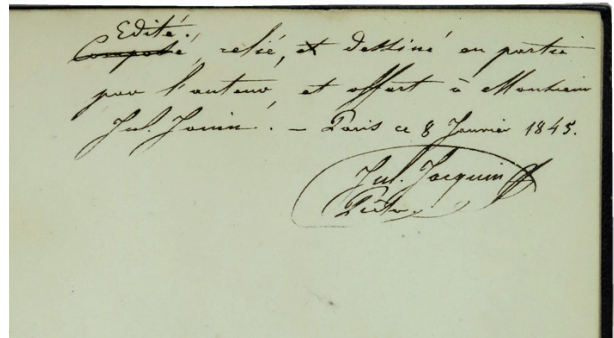 Edité.
Composé, relié, et dessiné en partie
par l'auteur et offert à Monsieur
Jul. Janin. — Paris ce 8 Janvier 1845.
Jul. Jacquin